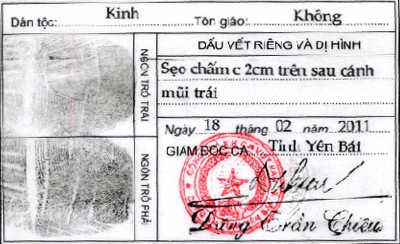 Dân tộc: Kinh Tôn giáo: Không
DẤU VẾT RIÊNG VÀ DỊ HÌNH
Sẹo chấm c 2cm trên sau cánh
mũi trái
NGÓN TRỎ TRÁI
NGÓN TRỎ PHẢ
Ngày 18 tháng 02 năm 2011
GIÁM ĐỐC CA Yên Bái
Trần